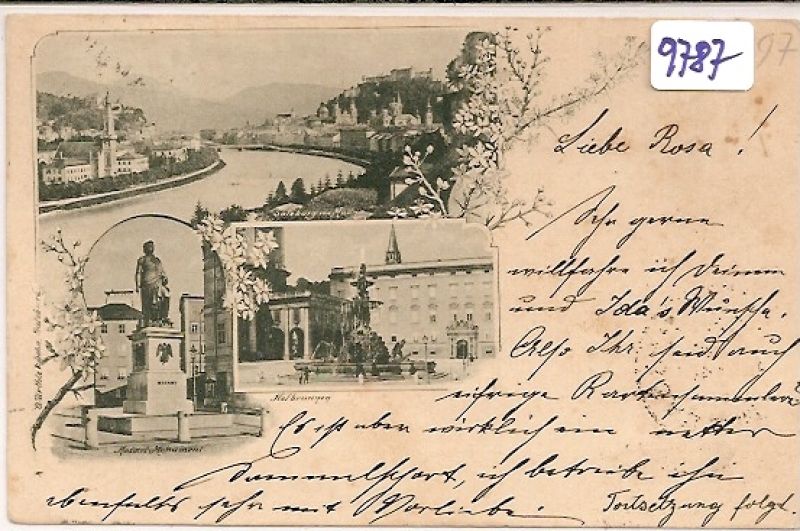 9787
97
Liebe Rosa!
Sehr gerne
willfahre ich Deinem
und Ida's Wunsche.
Also Ihr seid auch
eifrige Kartensammler?
Es ist aber wirklich ein netter
Sammelsport, ich betreibe ihn
ebenfalls sehr mit Vorliebe.
Fortsetzung folgt.
Salzburg
Hofbrunnen
Mozart-Monument
MOZART